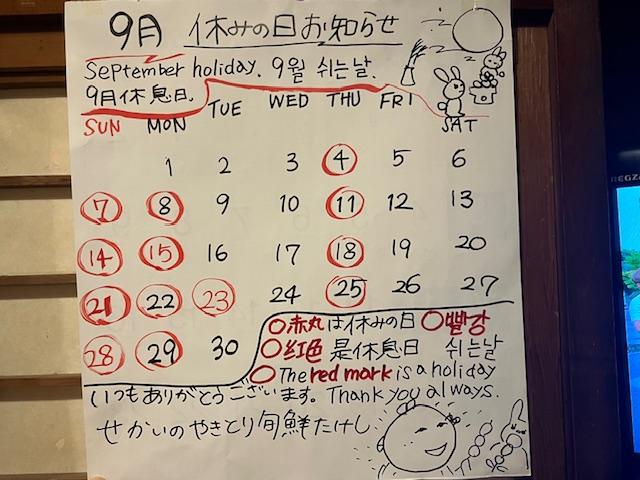 9月 休みの日お知らせ
September holiday. 9월 쉬는날.
9月休息日.
SUN MON TUE WED THU FRI SAT
1 2 3 4 5 6
7 8 9 10 11 12 13
14 15 16 17 18 19 20
21 22 23 24 25 26 27
28 29 30
○赤丸は休みの日 ○빨강
○红色是休息日 쉬는날
○The red mark is a holiday
いつもありがとうございます。Thank you always.
せかいのやきとり旬鮮たけし
REGZA